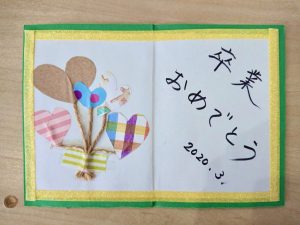 卒業
おめでとう
2020.3.